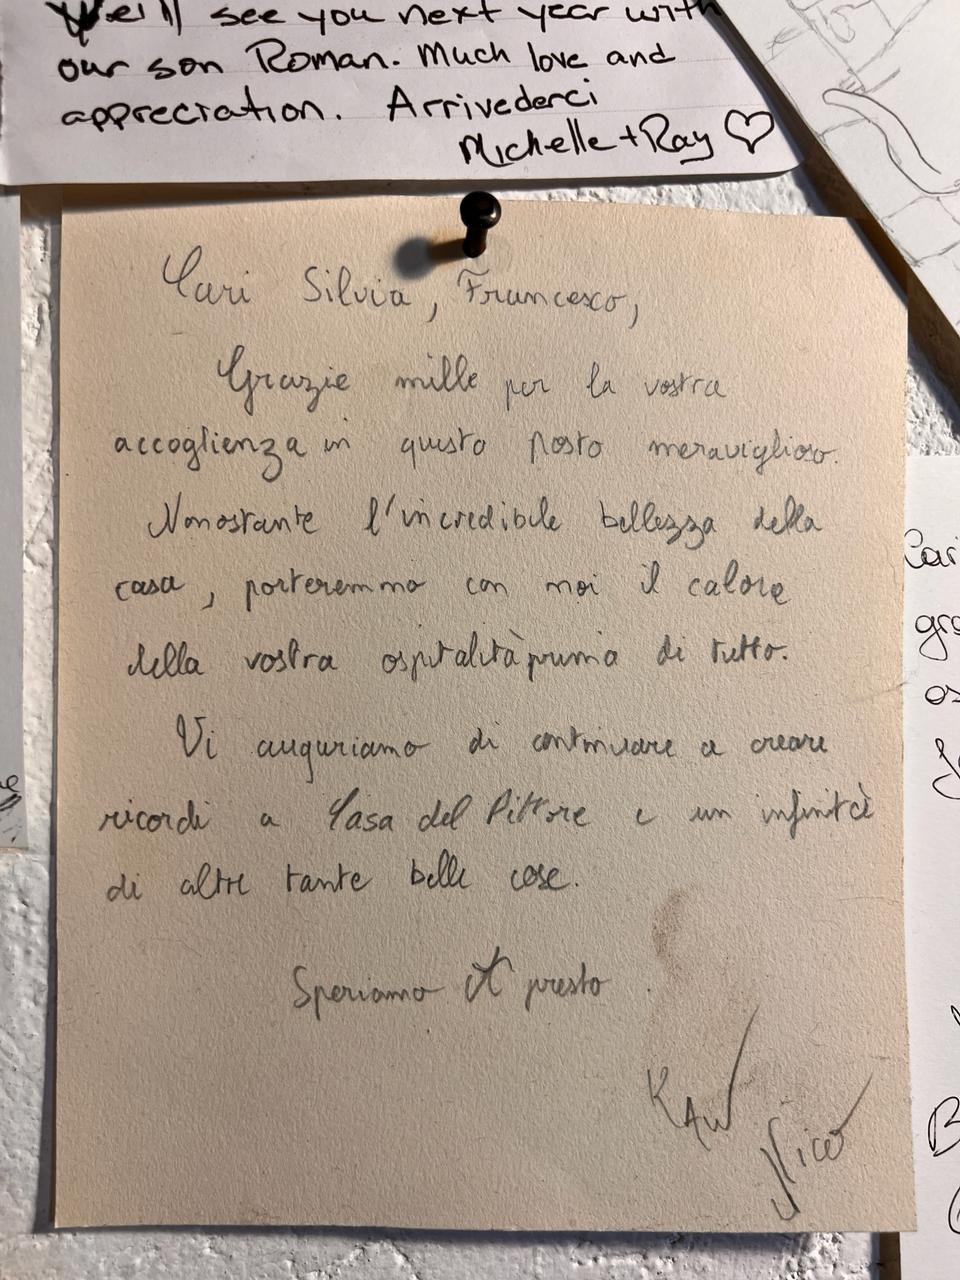 We'll see you next year with
our son Roman. Much love and
appreciation. Arrivederci
Michelle + Ray ♡
Cari Silvia, Francesco,
Grazie mille per la vostra
accoglienza in questo posto meraviglioso.
Nonostante l'incredibile bellezza della
casa, porteremmo con noi il calore
della vostra ospitalità prima di tutto.
Vi auguriamo di continuare a creare
ricordi a Casa del Pittore e un infinità
di altre tante belle cose.
Speriamo A presto.
Nico
Cari
gra
os